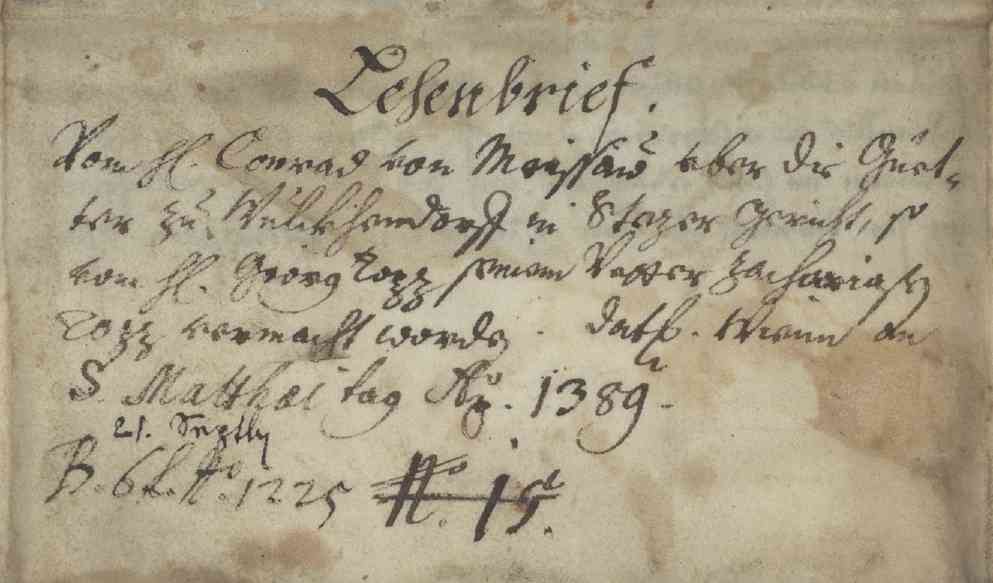 Lehenbrief.
Vom Hl. Conrad von Meissaw vber die Güet-
ter zu Wülkhendorff in Stezer gericht, so
vom Hl. Georg Lozz seinem Vetter Zachariasen
Lozz vermacht worden. Dat. Wienn an
S. Matthæi tag Ao. 1389.
21. Septb
B. 6 No. 1225 No. 15.